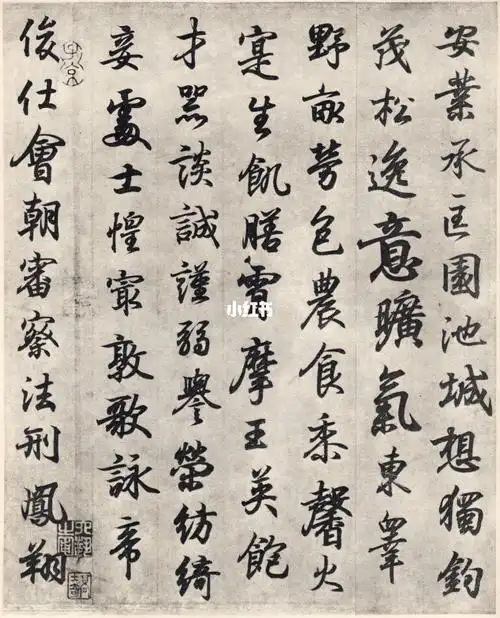 安業承匡園池城想獨鈞
茂松逸意曠氣東
野畝勞包農食黍馨火
寔生飢膳雪摩王英飽
才器談誠謹弱譽榮紡綺
妾處士惶敦歌詠帝
俊仕會朝審察法刑鳳翔
小红书